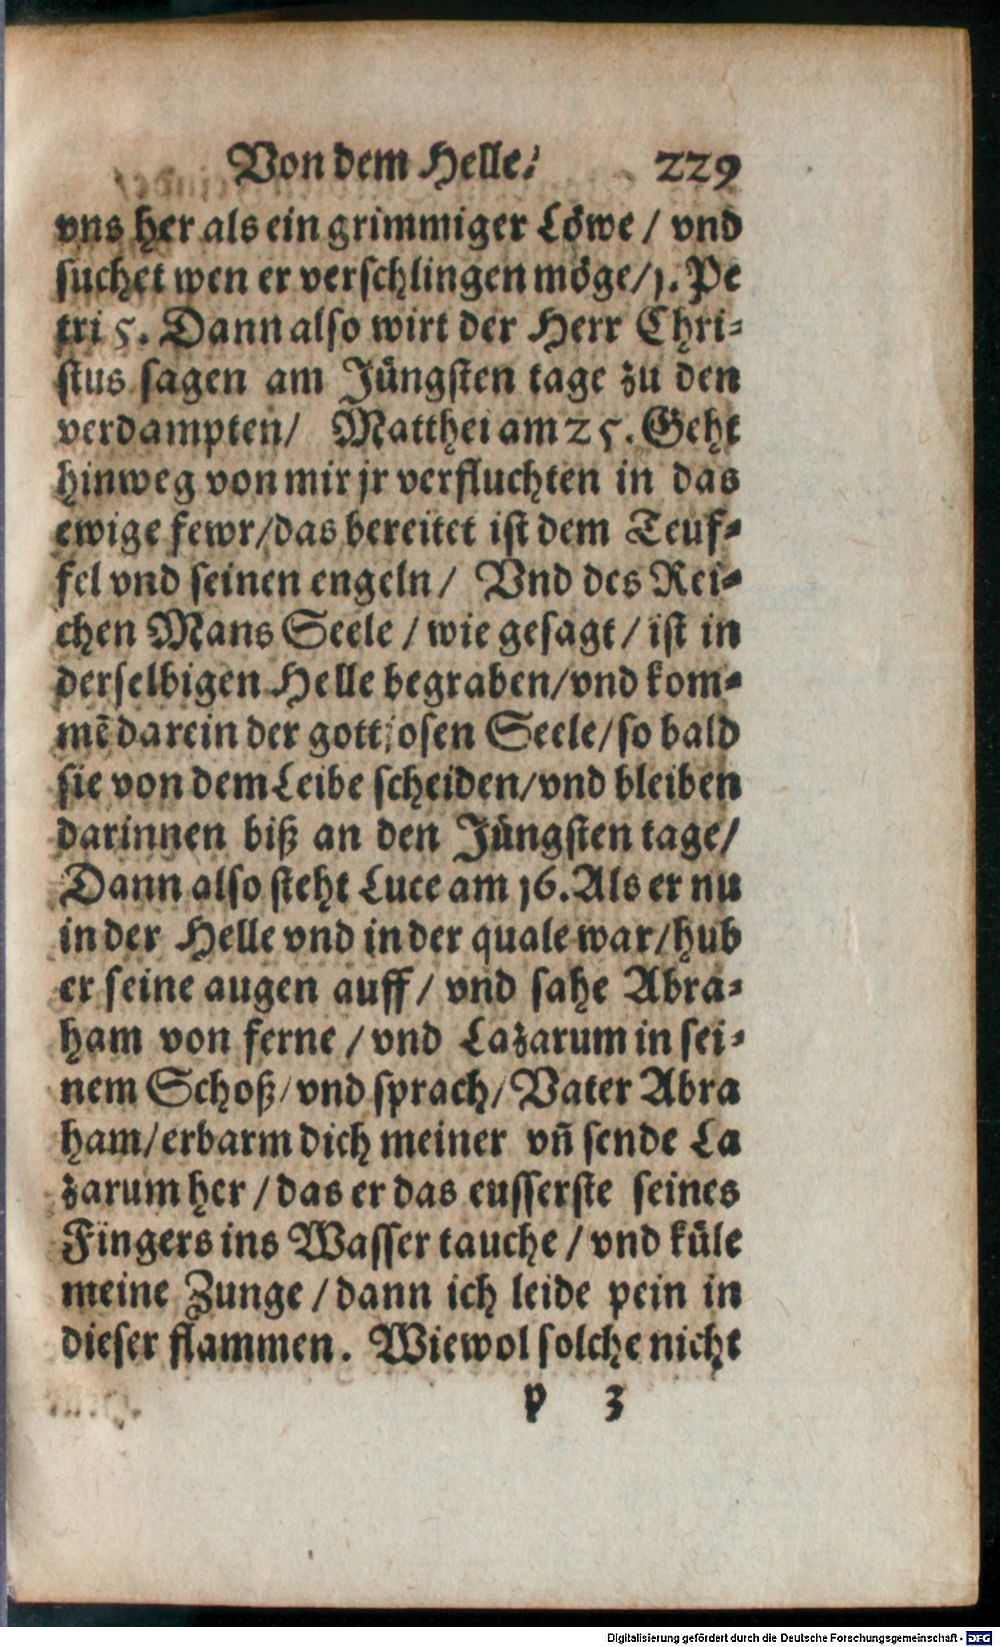 Von dem Helle. 229
vns her als ein grimmiger Löwe / vnd
suchet wen er verschlingen möge/1. Pe
tri 5. Dann also wirt der Herr Chri-
stus sagen am Jüngsten tage zu den
verdampten/ Matthei am 25. Geht
hinweg von mir jr verfluchten in das
ewige fewr/das bereitet ist dem Teuf-
fel vnd seinen engeln/ Vnd des Rei-
chen Mans Seele / wie gesagt / ist in
derselbigen Helle begraben/vnd kom-
mē darein der gottlosen Seele/so bald
sie von dem Leibe scheiden/vnd bleiben
darinnen biß an den Jüngsten tage/
Dann also steht Luce am 16. Als er nu
in der Helle vnd in der quale war/hub
er seine augen auff / vnd sahe Abra-
ham von ferne / vnd Lazarum in sei-
nem Schoß/vnd sprach/Vater Abra
ham/erbarm dich meiner vñ sende La
zarum her / das er das eusserste seines
Fingers ins Wasser tauche / vnd küle
meine Zunge / dann ich leide pein in
dieser flammen. Wiewol solche nicht
p 3
Digitalisierung gefördert durch die Deutsche Forschungsgemeinschaft - DFG